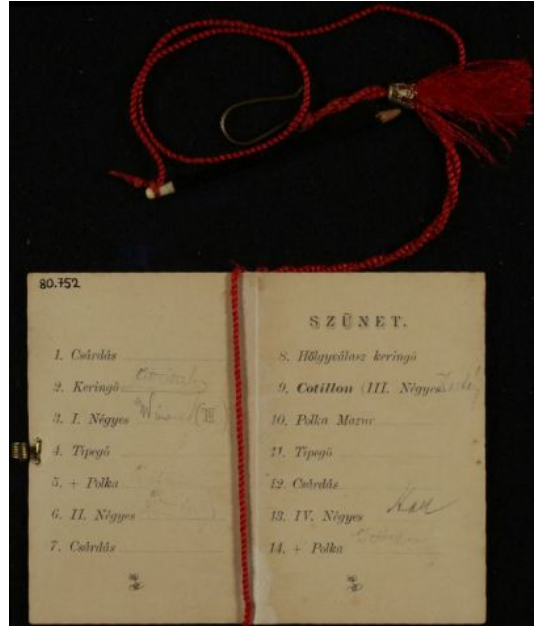 80.752
1. Csárdás
2. Keringő
3. I. Négyes (III)
4. Tipegő
5. + Polka
6. II. Négyes
7. Csárdás
SZÜNET.
8. Hölgyválasz keringő
9. Cotillon (III. Négyes
10. Polka Mazur
11. Tipegő
12. Csárdás
13. IV. Négyes
14. + Polka